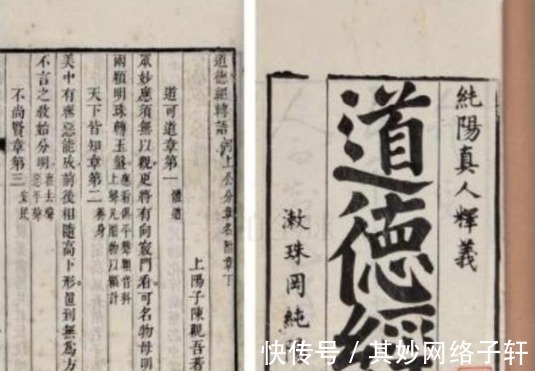 純陽真人釋義
道德經
漱珠岡純
道德經轉語河上公分章名附章下
上陽子陳觀吾著
道可道章第一 體道
眾妙應須無以觀更將有向竅門看可名物母明
兩顆明珠轉玉盤
天下皆知章第二 養身
美中有惡惡能
前後相隨高下形
到無為方
不言之教始分明
不尚賢章第三 安民
快传号/其妙网络子轩